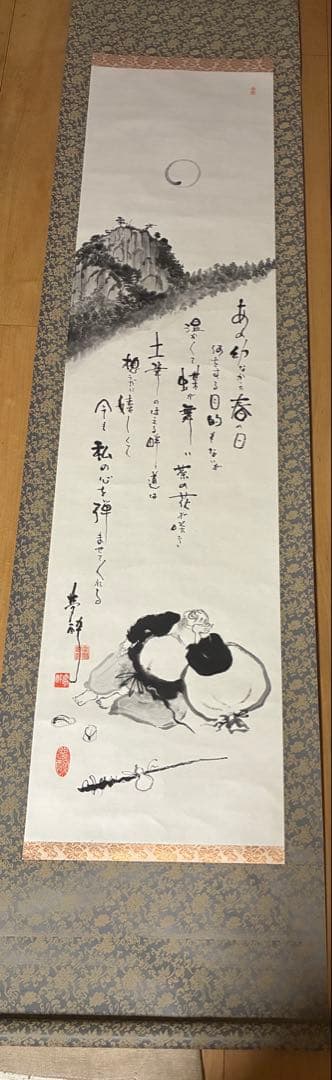 あの幼なかった春の日
何をする目的もないが
温かくて蝶が舞い菜の花が咲き
土筆のはえる畔道は
想うだに嬉しくて
今も私の心を弾ませてくれる
夢酔